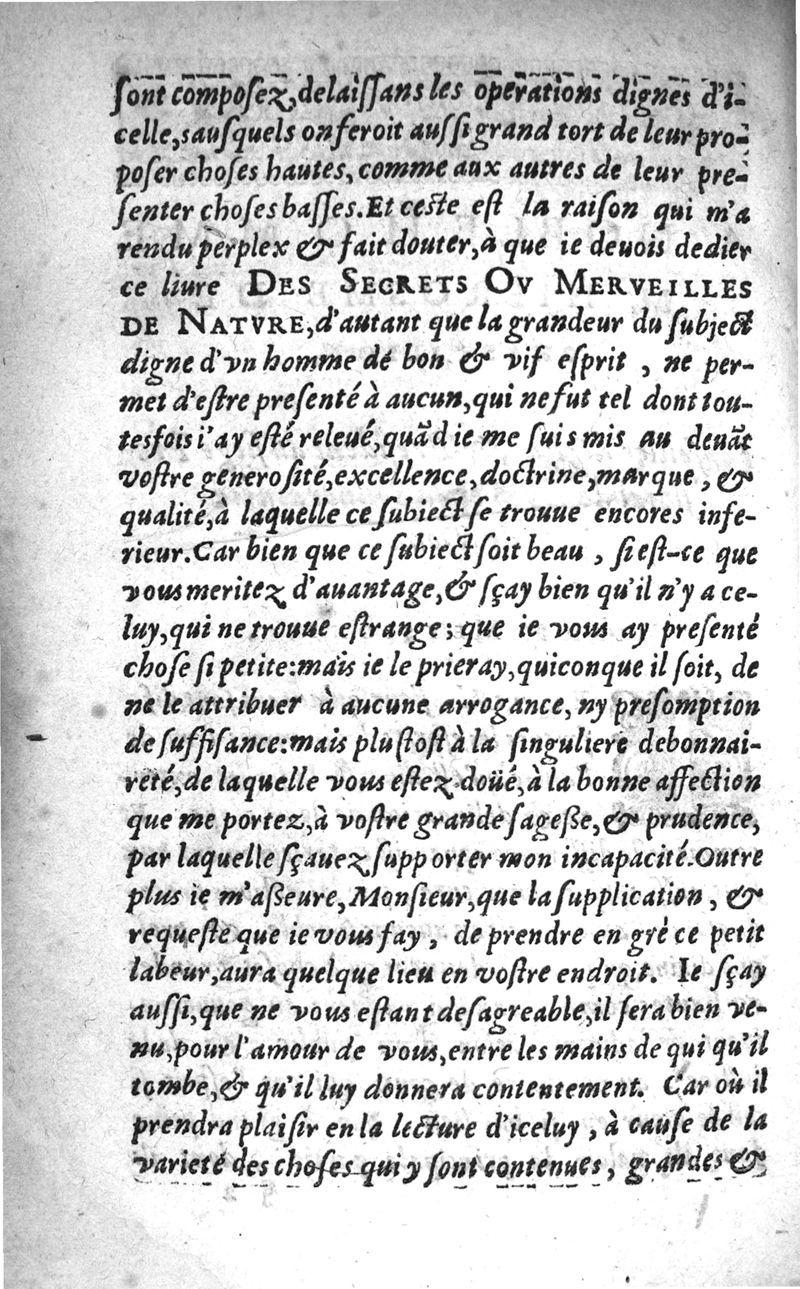 ſont compoſez, delaiſſans les operations dignes d'i-
celle, sauſquels on feroit auſſi grand tort de leur pro-
poſer choſes hautes, comme aux autres de leur pre-
ſenter choſes baſſes. Et ceſte eſt la raiſon qui m'a
rendu perplex & fait douter, à que ie deuois dedier
ce liure DES SECRETS OV MERVEILLES
DE NATVRE, d'autant que la grandeur du ſubject
digne d'vn homme de bon & vif eſprit , ne per-
met d'eſtre preſenté à aucun, qui ne fut tel dont tou-
tesfois i'ay eſté releué, quãd ie me ſuis mis au deuãt
voſtre generoſité, excellence, doctrine, marque , &
qualité, à laquelle ce ſubiect ſe trouue encores infe-
rieur. Car bien que ce ſubiect ſoit beau , ſi eſt-ce que
vous meritez d'auantage, & ſçay bien qu'il n'y a ce-
luy, qui ne trouue eſtrange; que ie vous ay preſenté
choſe ſi petite: mais ie le prieray, quiconque il ſoit, de
ne le attribuer à aucune arrogance, ny preſomption
de ſuffiſance: mais pluſtoſt à la ſinguliere debonnai-
reté, de laquelle vous eſtez doüé, à la bonne affection
que me portez, à voſtre grande ſageſſe, & prudence,
par laquelle ſçauez ſupporter mon incapacité. Outre
plus ie m'aſſeure, Monſieur, que la ſupplication , &
requeſte que ie vous fay , de prendre en gré ce petit
labeur, aura quelque lieu en voſtre endroit. Ie ſçay
auſſi, que ne vous eſtant deſagreable, il ſera bien ve-
nu, pour l'amour de vous, entre les mains de qui qu'il
tombe, & qu'il luy donnera contentement. Car où il
prendra plaiſir en la lecture d'iceluy , à cauſe de la
varieté des choſes qui y ſont contenues , grandes &